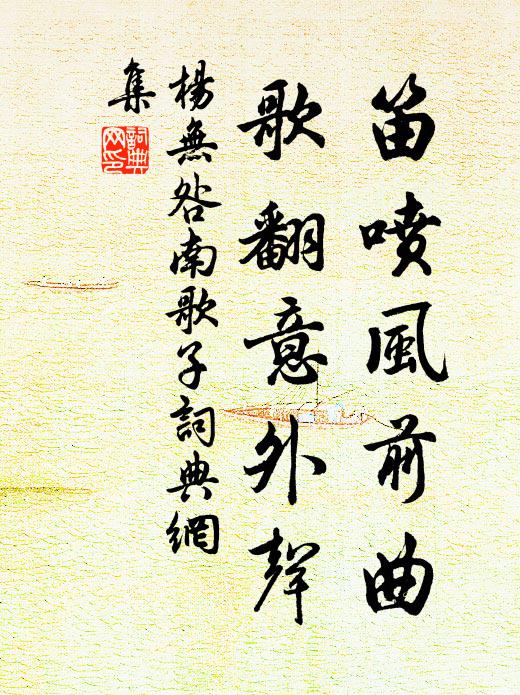 笛噴風前曲
歌翻意外聲
楊無咎南歌子詞典網
集
詞典
网印